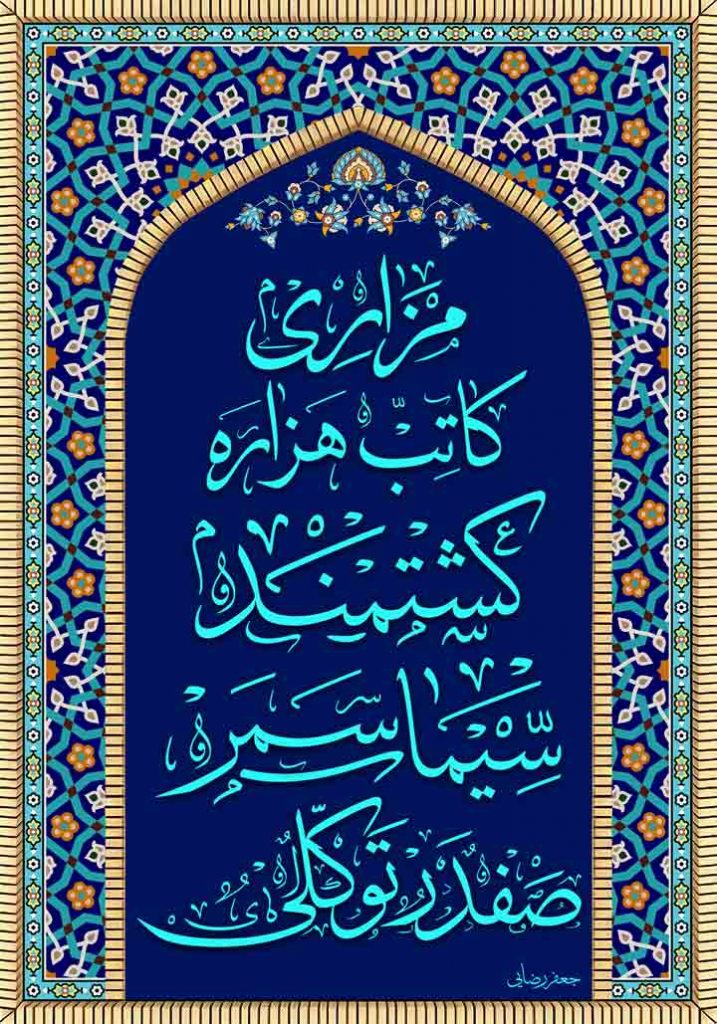 مزاری
کاتب هزاره
کشتمند
سیما سمر
صفدر توکلی
جعفر رضایی